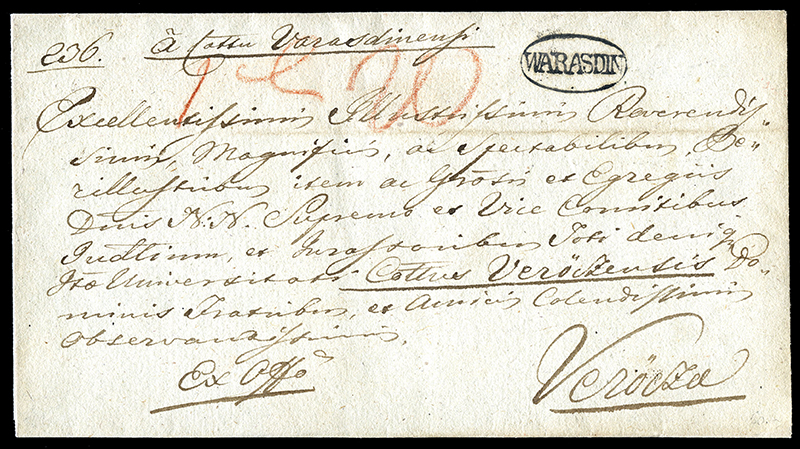 236. à Cottu Varasdinensi
WARASDIN
Excellentissimis Illustrissimis Reverendis-
simis, Magnificis, ac Spectabilibus, Pe-
rillustribus item ac Grosis et Egregiis
Dnis N.N. Supremo et Vice Comitibus
Judlium, et Jurassoribus Toti deniq
Itae Universitati Cottus Veröczensis Do-
minis Fratribus, et Amicis Colendissimis
Observantissimis.
Ex Offo
Verőcza